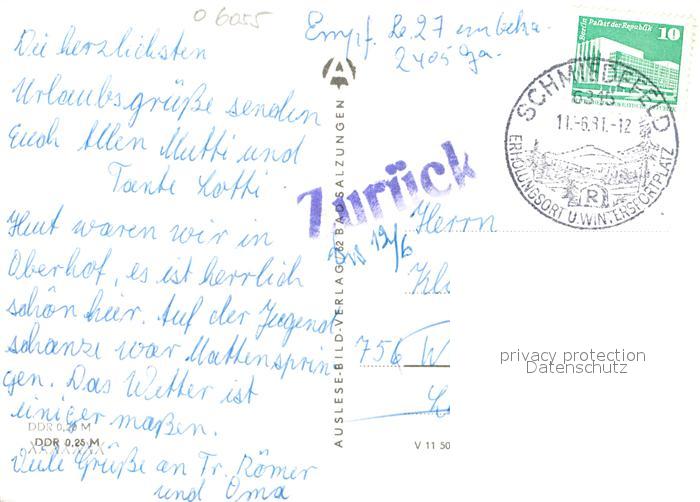 06055
Die herzlichsten
Urlaubsgrüße senden
Euch Allen Mutti und
Tante Lotti.
Heut waren wir in
Oberhof, es ist herrlich
schön hier. Auf der Jugend-
schanze war Mattensprin-
gen. Das Wetter ist
einiger maßen.
DDR 0,20 M
DDR 0,25 M
Viele Grüße an Tr. Römer
und Oma
Empf. Le. 27 unbeka.
AUSLESE-BILD-VERLAG 62 BAD SALZUNGEN
Zurück
Berlin, Palast der Republik
10
SCHMIEDEFELD
11.-6.81.-12
ERHOLUNGSORT U. WINTERSPORTPLATZ
R
19/6
Herrn
756 W
V 11 50
privacy protection
Datenschutz